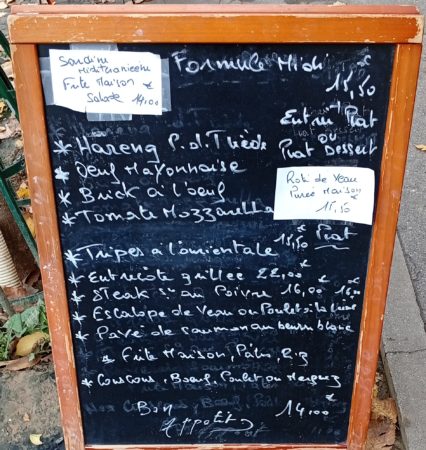 Sardine
Méditerranéenne
Frite Maison €
Salade 14,00
Formule Midi
€
15,50
Entrée Plat
ou
Plat Dessert
* Hareng P.d.Tièds
* Oeuf Mayonnaise
* Brick à l'oeuf
* Tomate Mozzarella
Roti de Veau
Purée Maison €
15,50
€
15,50 Plat
* Tripes a l'orientale
* Entrecôte grillée 22,00 €
* Steak au Poivre 16,00 €
* Escalope de Veau ou Poulet à la crème
* Pavé de saumon au beurre blanc
* Frite Maison, Pâtes, Riz
* Couscous, Boeuf, Poulet ou Merguez
€
14,00
Bon
Appétit